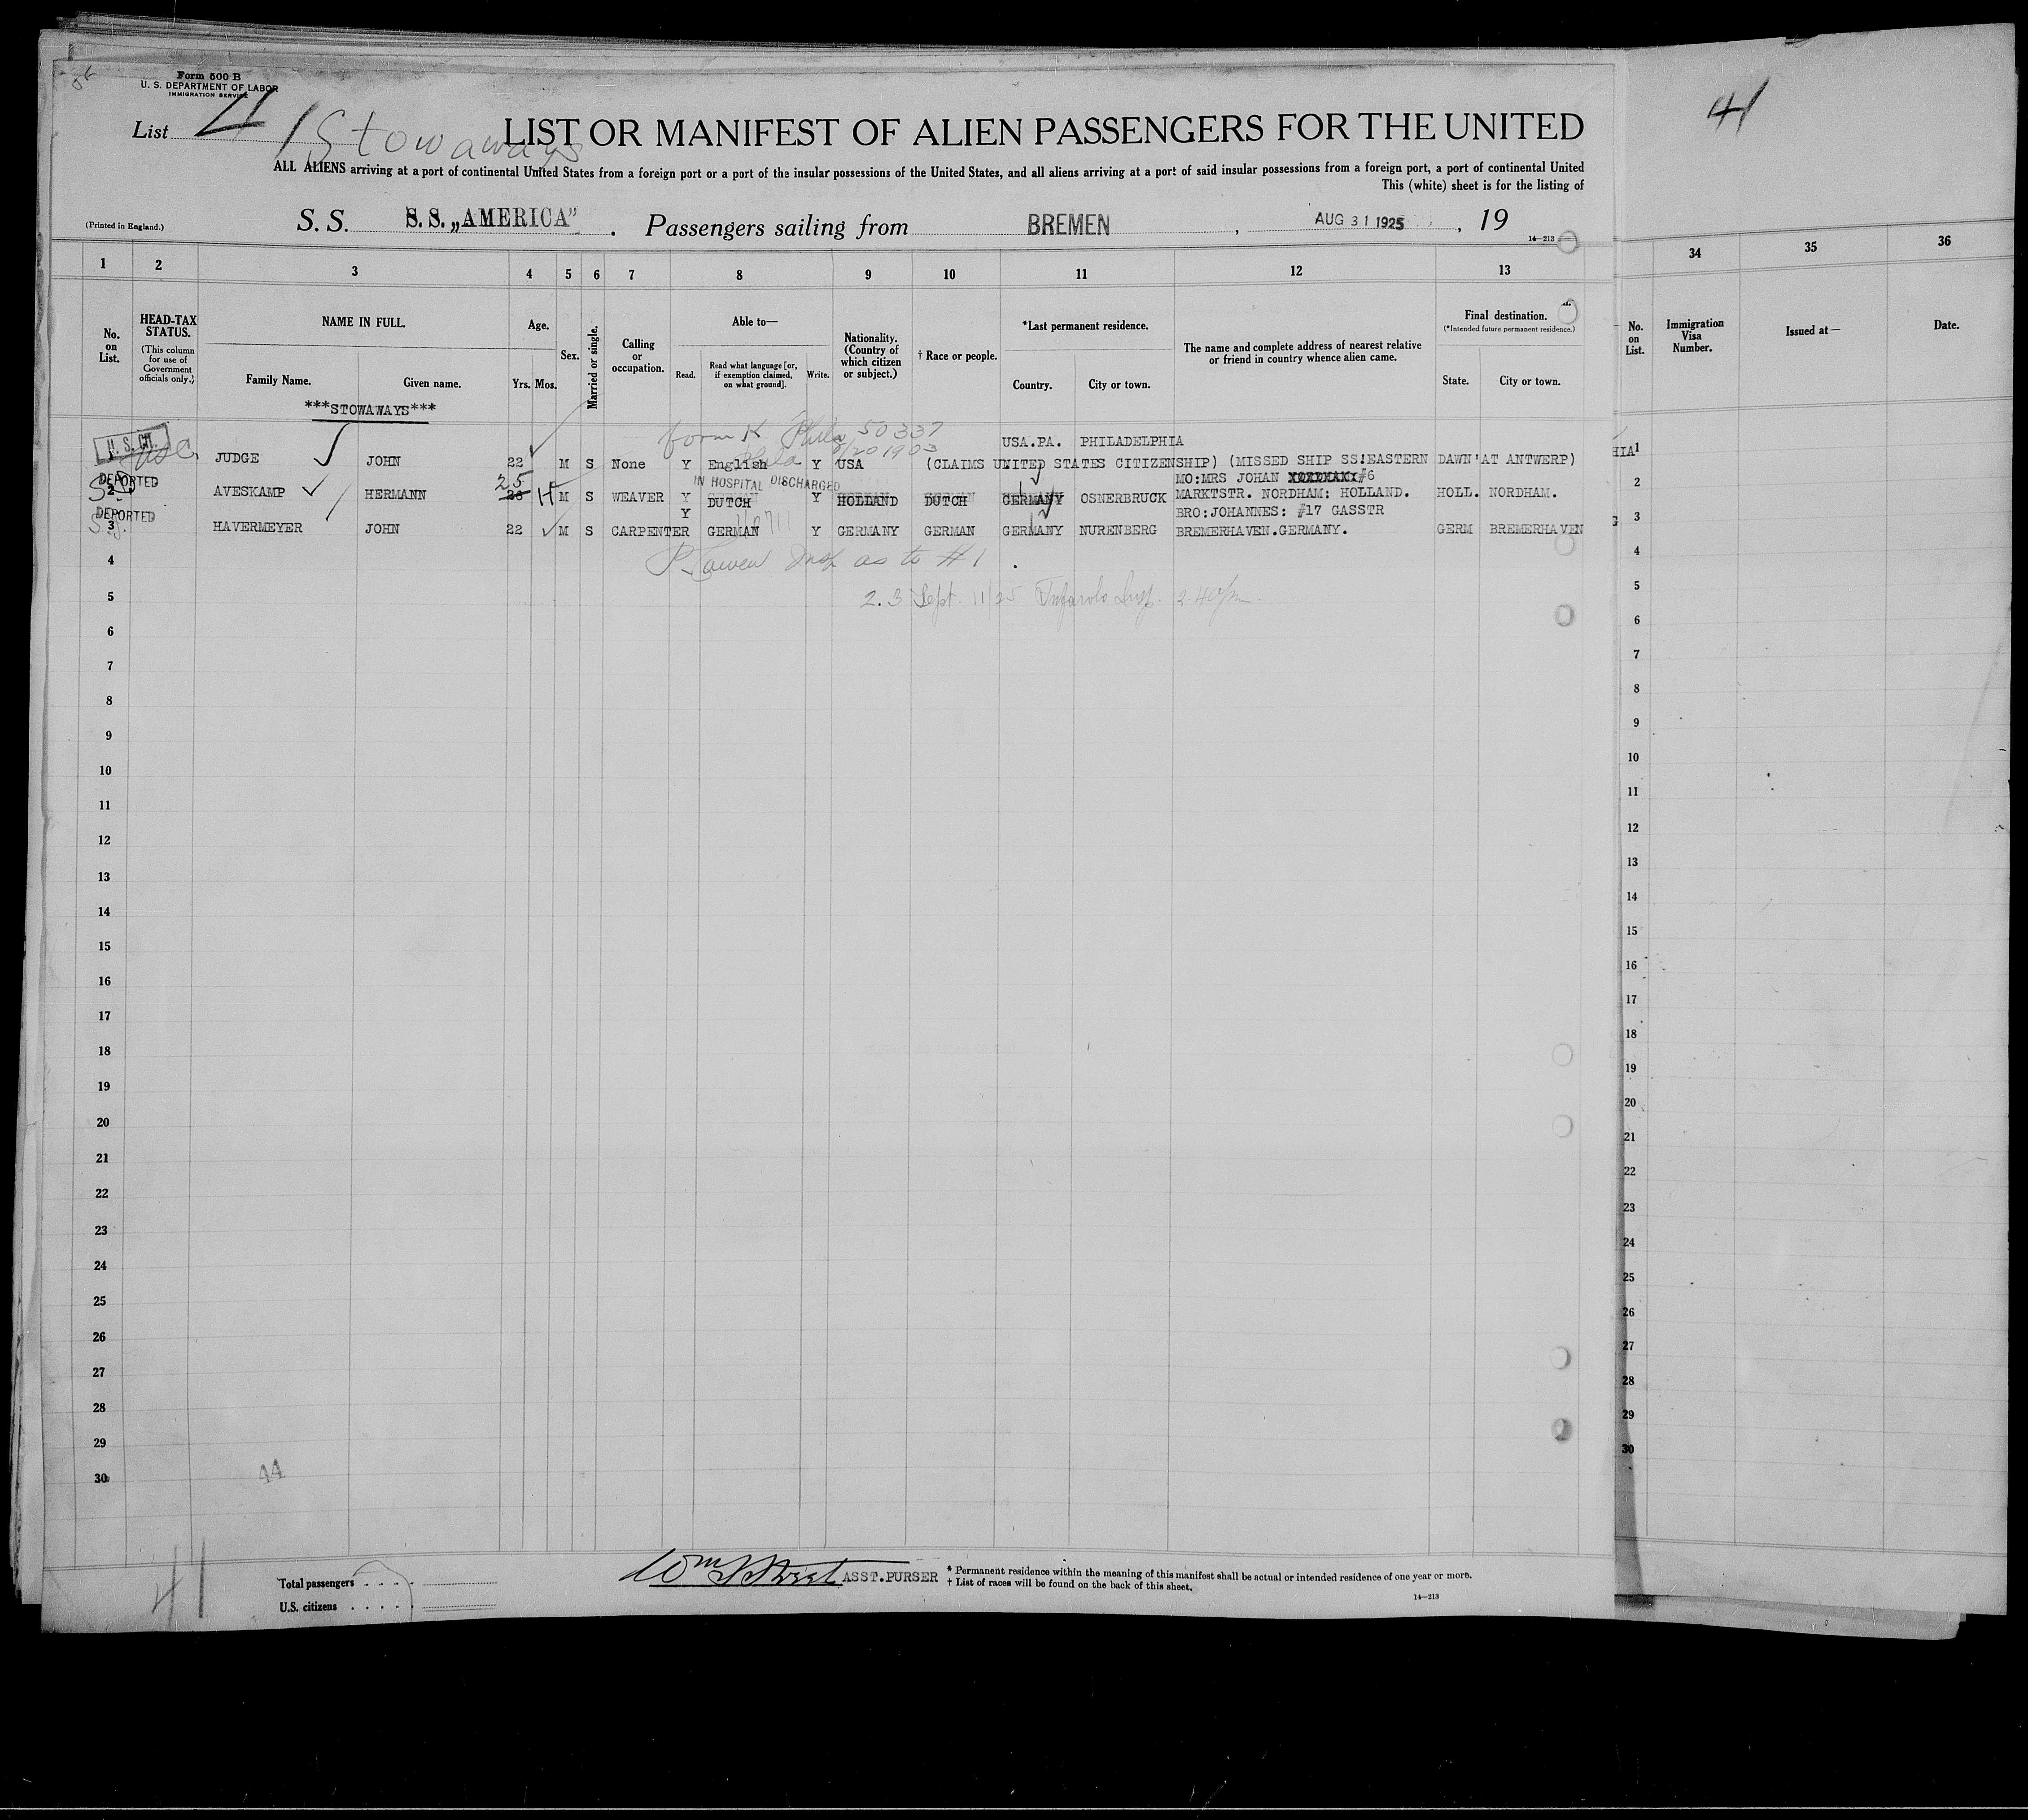 Form 500 B
U. S. DEPARTMENT OF LABOR
IMMIGRATION SERVICE
List 41 Stowaways
LIST OR MANIFEST OF ALIEN PASSENGERS FOR THE UNITED
41
ALL ALIENS arriving at a port of continental United States from a foreign port or a port of the insular possessions of the United States, and all aliens arriving at a port of said insular possessions from a foreign port, a port of continental United
This (white) sheet is for the listing of
(Printed in England.)
S. S. S. S. „AMERICA" . Passengers sailing from BREMEN , AUG 31 1925 , 19
14—213
1 2 3 4 5 6 7 8 9 10 11 12 13 34 35 36
No. on List.
HEAD-TAX STATUS.
(This column for use of Government officials only.)
NAME IN FULL.
Family Name. Given name.
Age.
Yrs. Mos.
Sex.
Married or single.
Calling or occupation.
Able to—
Read. Read what language [or, if exemption claimed, on what ground]. Write.
Nationality. (Country of which citizen or subject.)
† Race or people.
*Last permanent residence.
Country. City or town.
The name and complete address of nearest relative or friend in country whence alien came.
Final destination.
(*Intended future permanent residence.)
State. City or town.
No. on List.
Immigration Visa Number.
Issued at—
Date.
***STOWAWAYS***
form K Phila 50337
8/20 1903
USA.PA. PHILADELPHIA
U. S. CIT.
1 JUDGE JOHN 22 M S None Y English Y USA (CLAIMS UNITED STATES CITIZENSHIP) (MISSED SHIP SS!EASTERN DAWN'AT ANTWERP)
DEPORTED
25
IN HOSPITAL DISCHARGED
MO:MRS JOHAN #6
2 AVESKAMP HERMANN M S WEAVER Y DUTCH Y HOLLAND DUTCH GERMANY OSNERBRUCK MARKTSTR. NORDHAM: HOLLAND. HOLL. NORDHAM.
DEPORTED
Y
BRO:JOHANNES: #17 GASSTR
3 HAVERMEYER JOHN 22 M S CARPENTER GERMAN Y GERMANY GERMAN GERMANY NURENBERG BREMERHAVEN.GERMANY. GERM BREMERHAVEN
Insp as to #1
2.3 Sept. 11/25 Insp. 2.40pm
4
5
6
7
8
9
10
11
12
13
14
15
16
17
18
19
20
21
22
23
24
25
26
27
28
29
30
HIA
1
2
3
4
5
6
7
8
9
10
11
12
13
14
15
16
17
18
19
20
21
22
23
24
25
26
27
28
29
30
44
41
Total passengers . . . .
U.S. citizens . . . . .
ASST.PURSER
* Permanent residence within the meaning of this manifest shall be actual or intended residence of one year or more.
† List of races will be found on the back of this sheet.
14—213